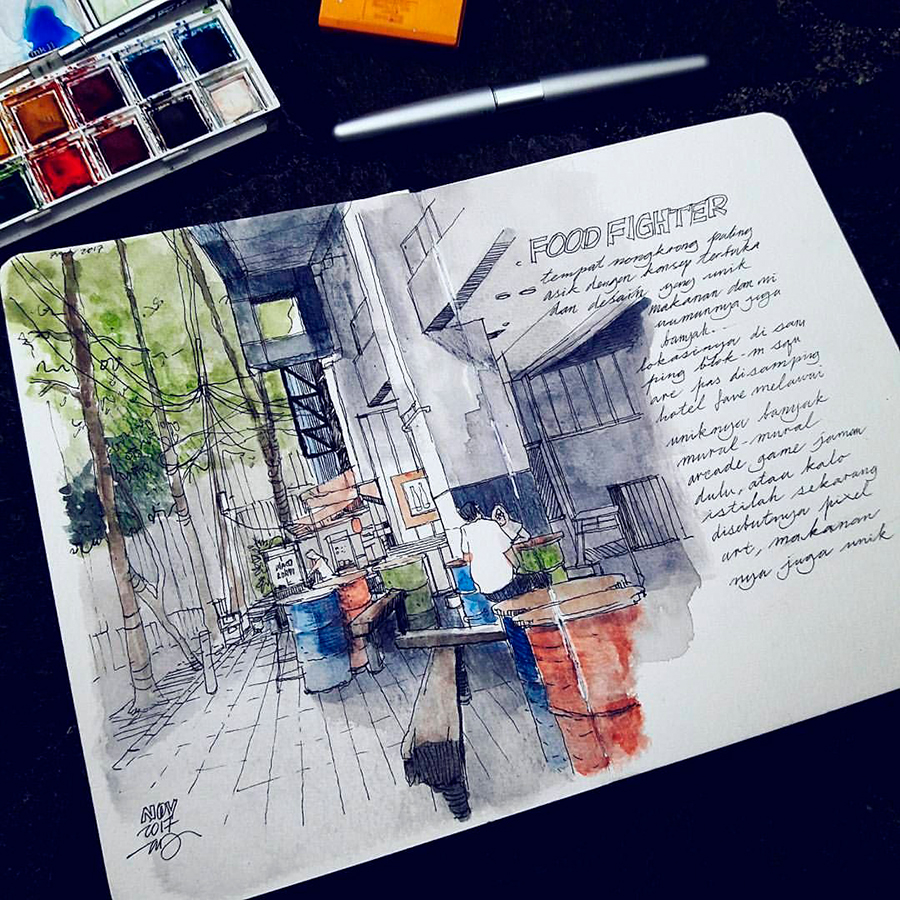 NOV 2017
FOOD FIGHTER
tempat nongkrong paling
asik dengan konsep terbuka
dan desain yang unik
makanan dan mi
numannya juga
banyak...
lokasinya di sam
ping blok m squ
are pas disamping
hotel fave melawai
uniknya banyak
mural-mural
arcade game jaman
dulu, atau kalo
istilah sekarang
disebutnya pixel
art, makanan
nya juga unik
NOV
2017